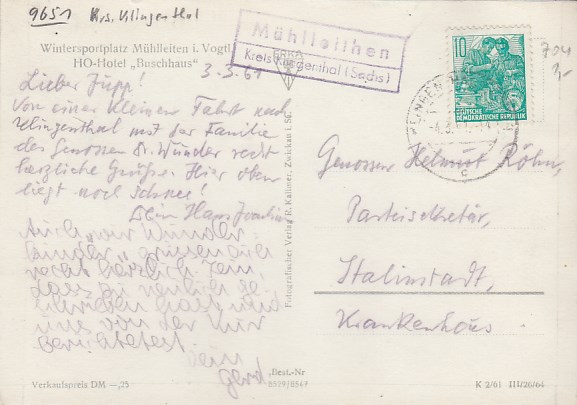 9651 Krs. Klingenthal
Mühlleithen
Kreis Klingenthal (Sachs)
Wintersportplatz Mühlleiten i. Vogtl.
HO-Hotel „Buschhaus"
3.3.61
Lieber Jupp!
Von einer kleinen Fahrt nach
Klingenthal mit der Familie
des Genossen Dr. Wunder recht
herzliche Grüße. Hier oben
liegt noch Schnee!
Dein Hans Joachim
Auch „wir Wunder-
kinder" grüssen Euch
recht herzlich
dass Du neulich ge-
schrieben hast und
uns von der
berichtetest.
Dein
Gerd
Fotografischer Verlag R. Kallmer, Zwickau i. Sa.
10
DEUTSCHE
DEMOKRATISCHE REPUBLIK
KLINGENTHAL
c
704
Genossen Helmut Röhn,
Parteisekretär,
Stalinstadt,
Krankenhaus
Verkaufspreis DM —,25
Best.-Nr
8529/8549
K 2/61 III/26/64